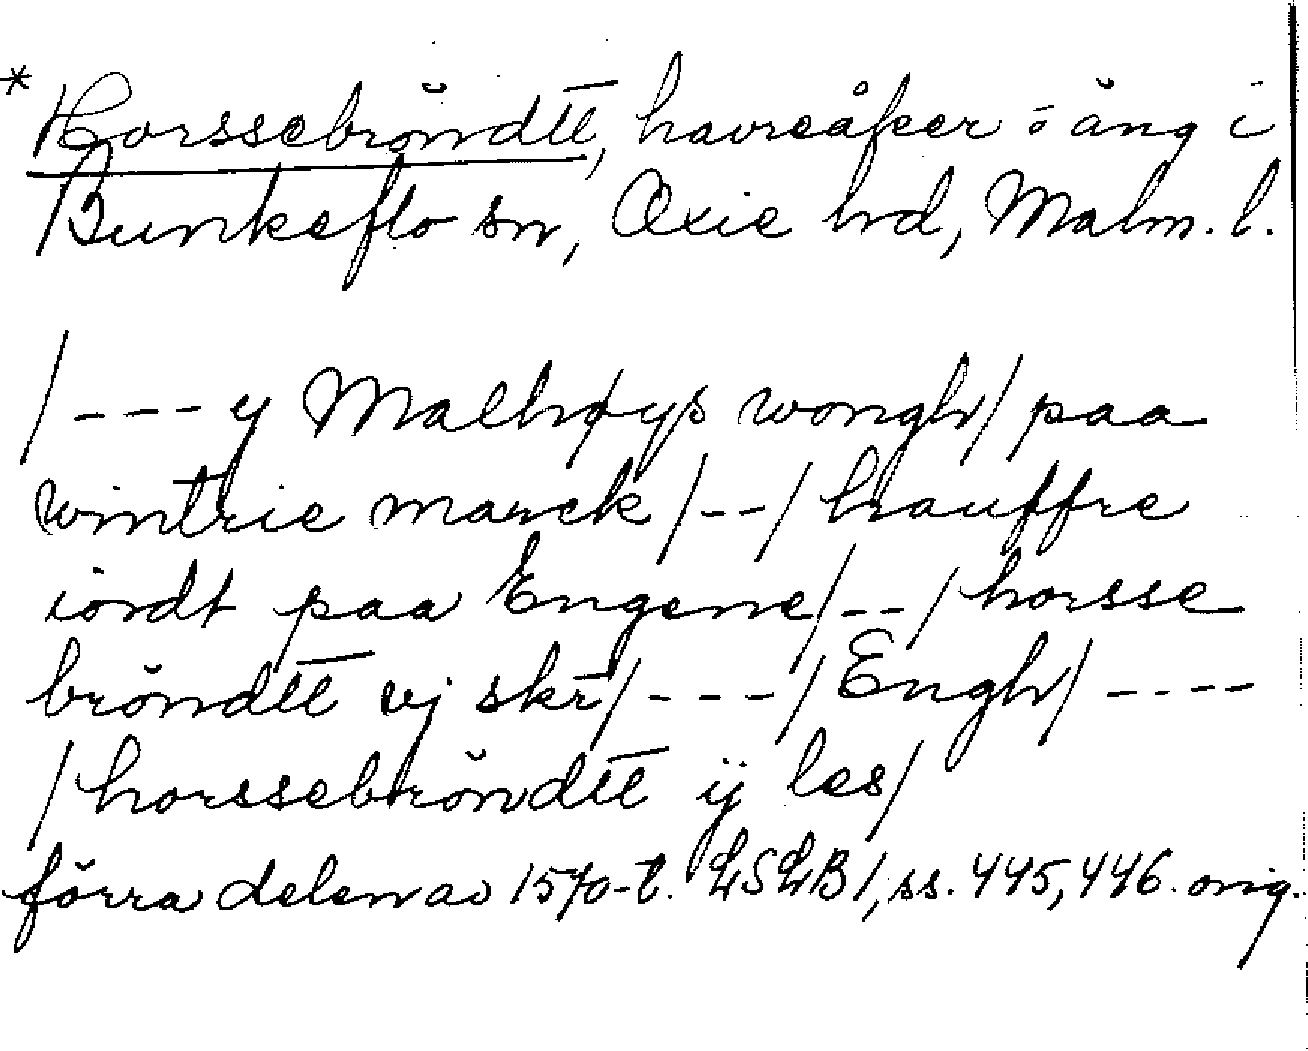 * Horssebröndtt, havreåker o äng i
Bunkeflo sn, Oxie hd, Malm. l.
/--- y Malhøys wongh/ paa
wintrie marck/--/hauffre
iordt paa Engene/--/horsse
bröndtt vj skr/---/Engh/----
/horssebröndtt ij les/
förra delen av 1570-t. LSLB 1, ss. 445, 446. orig.